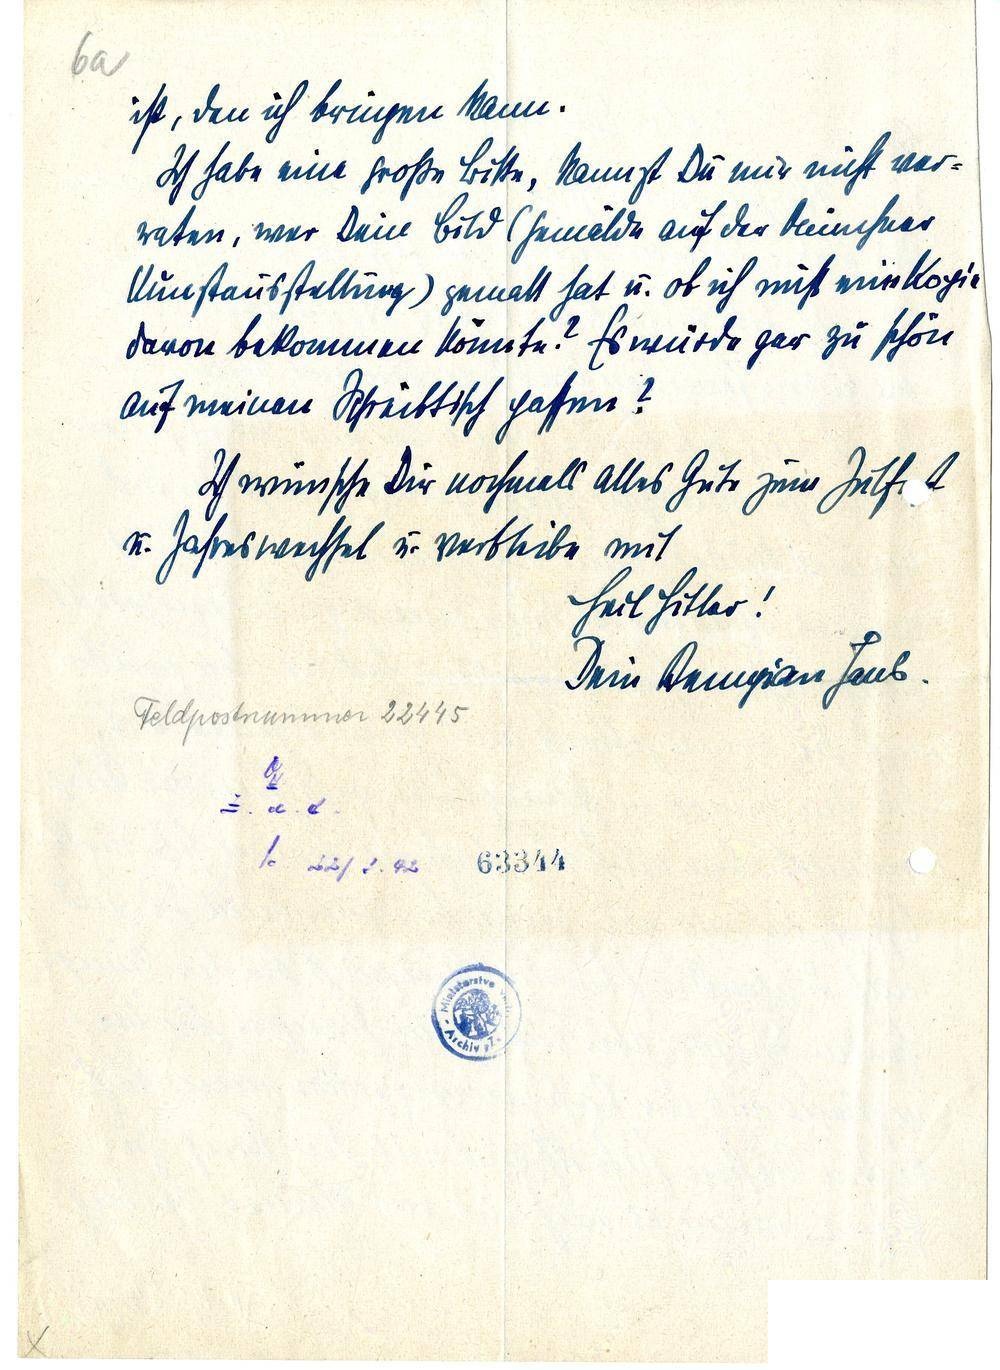 6a
ist, den ich bringen kann.
Ich habe eine große Bitte, kannst Du mir nicht ver-
raten, wer Dein Bild (Gemälde auf der Münchner
Kunstausstellung) gemalt hat u. ob ich nicht eine Kopie
davon bekommen könnte? Es würde gar zu schön
auf meinen Schreibtisch passen?
Ich wünsche Dir nochmals alles Gute zum Julfest
u. Jahreswechsel u. verbleibe mit
Heil Hitler!
Dein
Feldpostnummer 22445
63344
Ministerstvo
Archiv